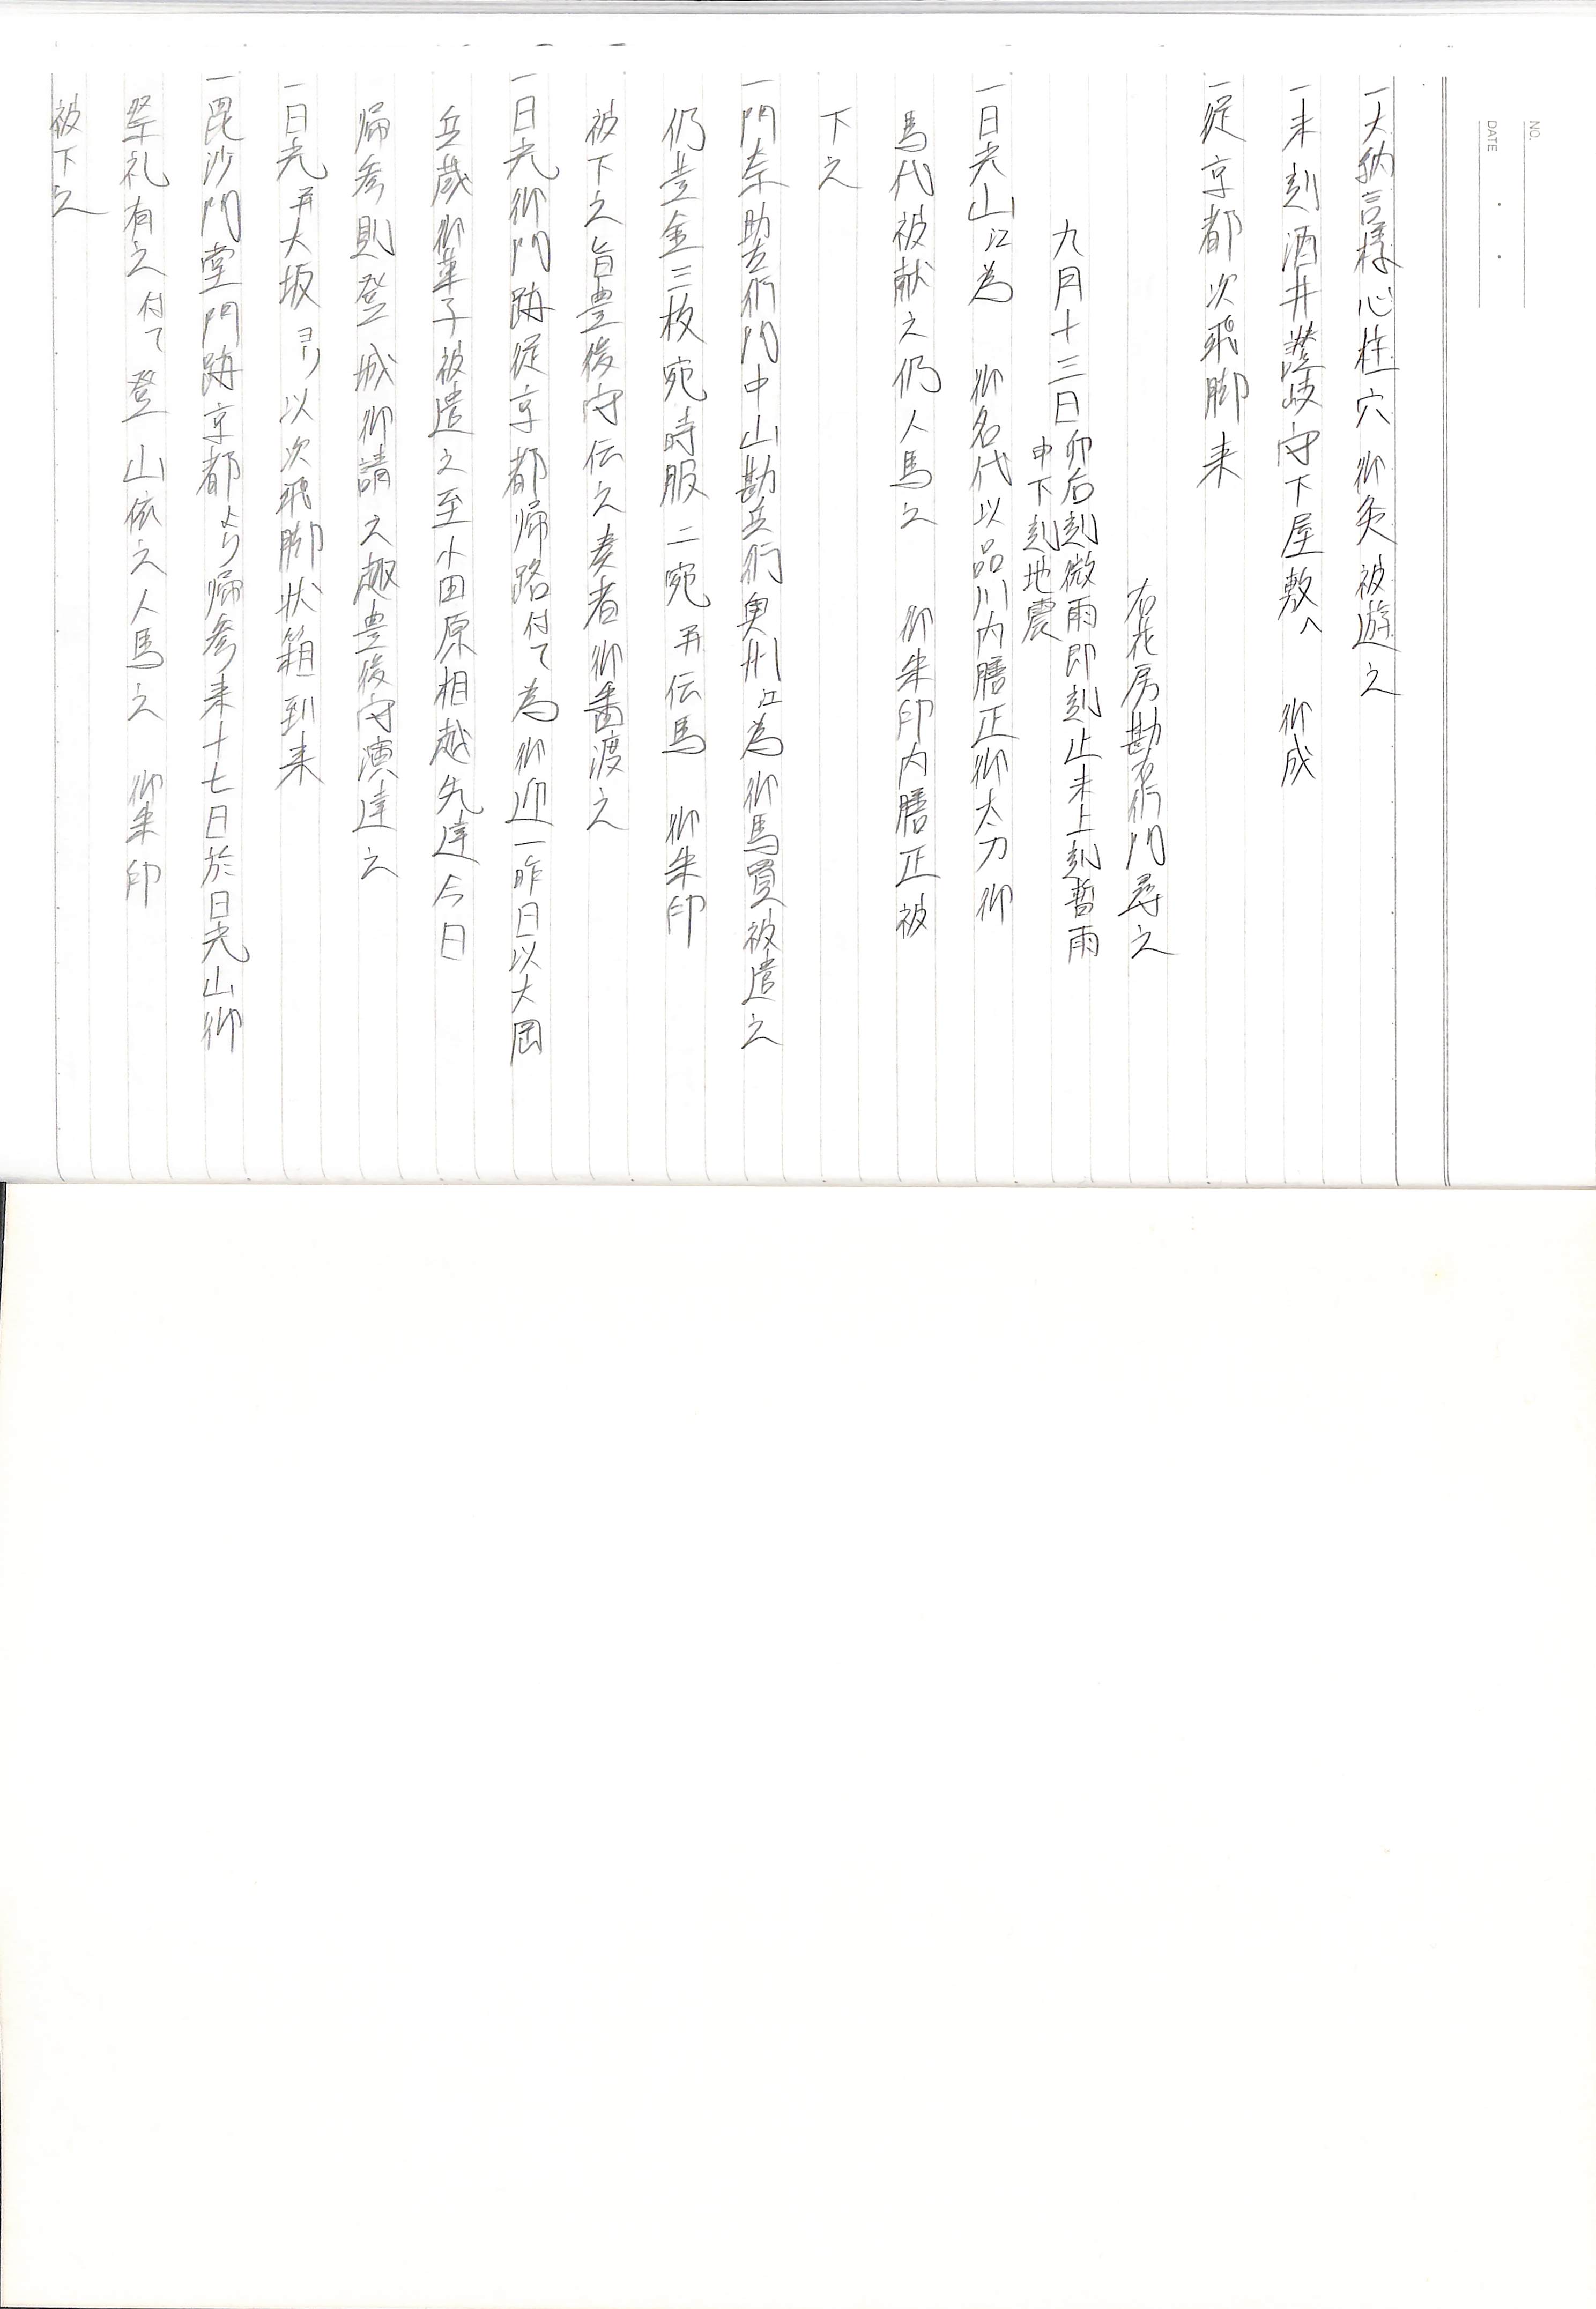 NO.
DATE
一大納言様心柱穴御灸被遊之
一未刻酒井讃岐守下屋敷へ 御成
一従京都次飛脚来
右花房勘右衛門尋之
九月十三日 卯后刻微雨即刻止未上刻暫雨
申下刻地震
一日光山江為 御名代以品川内膳正御太刀御
馬代被献之仍人馬之 御朱印内膳正被
下之
一門奈助左衛門中山勘兵衛奥州江為御馬買被遣之
仍黄金三枚宛時服二宛并伝馬 御朱印
被下之旨豊後守伝之奏者御番渡之
一日光御門跡従京都帰路付て為御迎一昨日以大岡
兵蔵御菓子被遣之至小田原相越先達今日
帰参則登城御請之趣豊後守演達之
一日光并大坂ヨリ以次飛脚状箱到来
一毘沙門堂門跡京都より帰参来十七日於日光山御
祭礼有之付て登山依之人馬之 御朱印
被下之